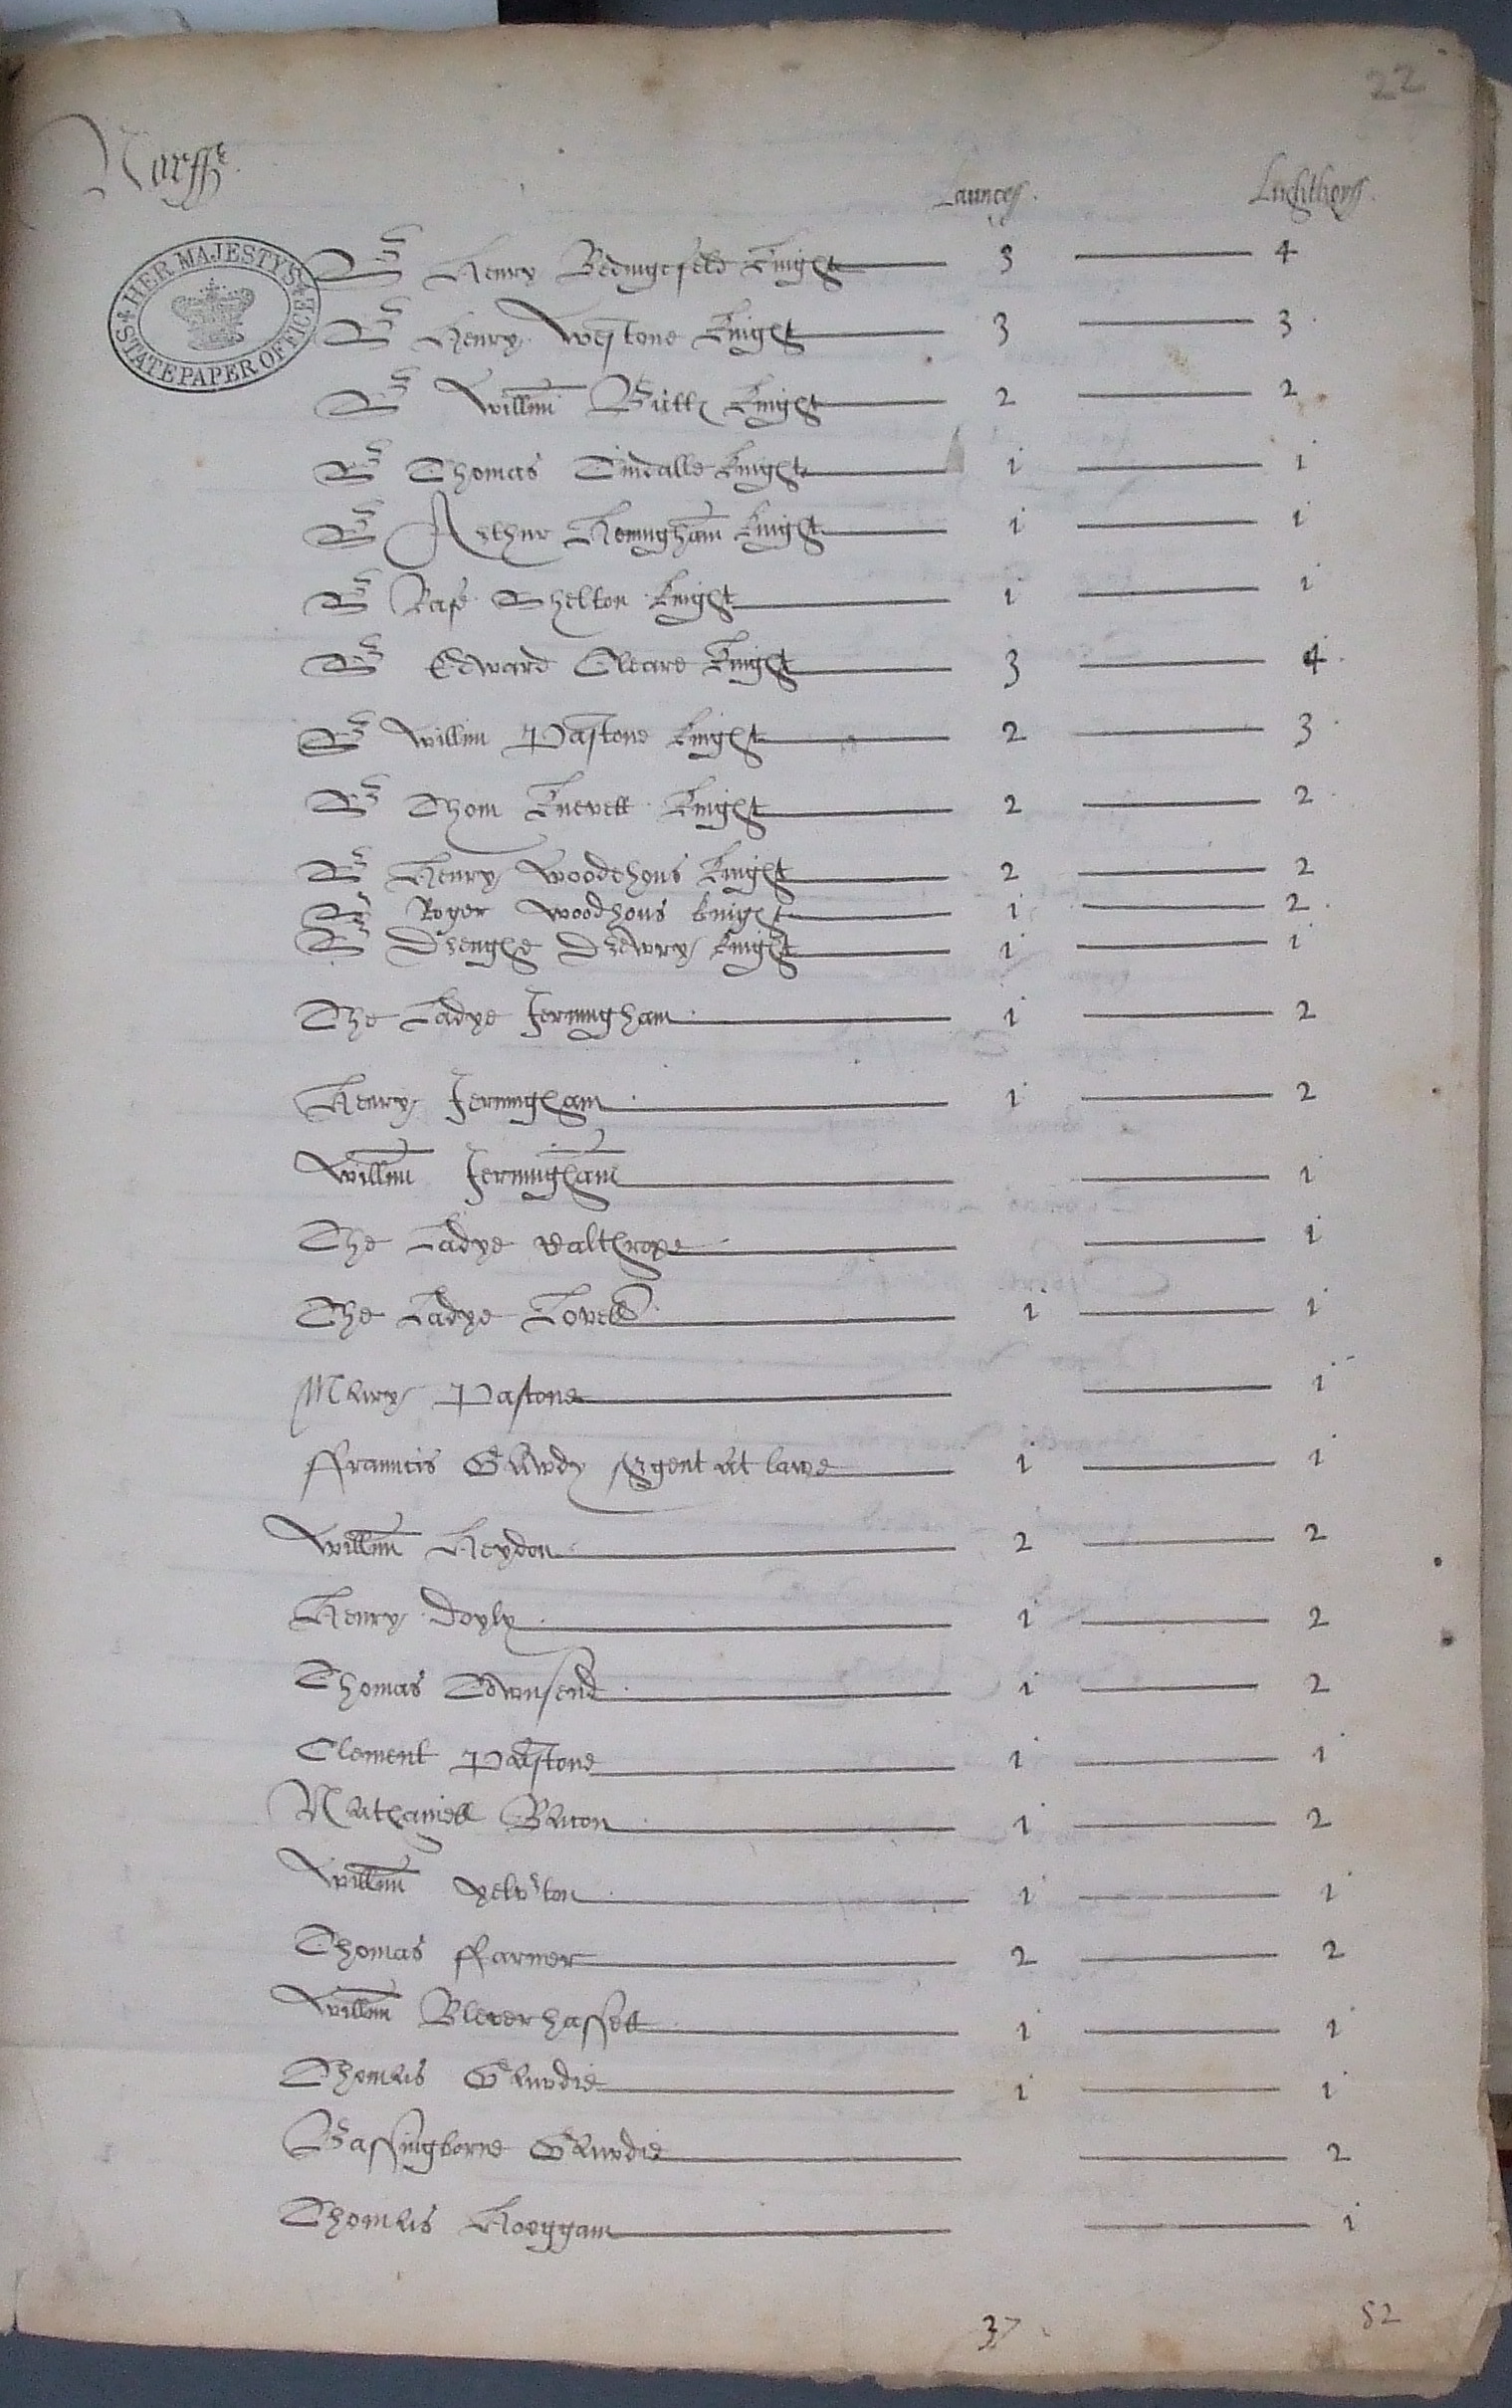 22
Norff
Launces Lighthors
HER MAJESTY'S STATE PAPER OFFICE
Sr Henry Bedingefeld knight 3 4
Sr Henry Westone knight 3 3
Sr Willm Butte knight 2 2
Sr Thomas Tindalle knight i i
Sr Arthur Heningham knight i i
Sr Rafe Shelton knight i i
Sr Edward Cleare knight 3 4
Sr Willm Pastone knight 2 3
Sr Thom Knevett knight 2 2
Sr Henry Woodehous knight 2 2
Sr Roger Woodhous knight i 2
Sr Drewghe Drewry knight i i
The Ladye Jerningham i 2
Henry Jerningham i 2
Willm Jerningham i
The Ladye Calthrope i
The Ladye Lovell i i
Mary Pastone i
Frauncis Gawdy srgent at lawe i i
Willm Heydon 2 2
Henry Doyly i 2
Thomas Townsend i 2
Clement Pastone i i
Nathaniell Bacon i 2
Willm yelvrton i i
Thomas ffarmer 2 2
Willm Bleverhassett i i
Thomas Gawdie i i
Bassingborne Gawdie 2
Thomas Hoeggam i
37 52